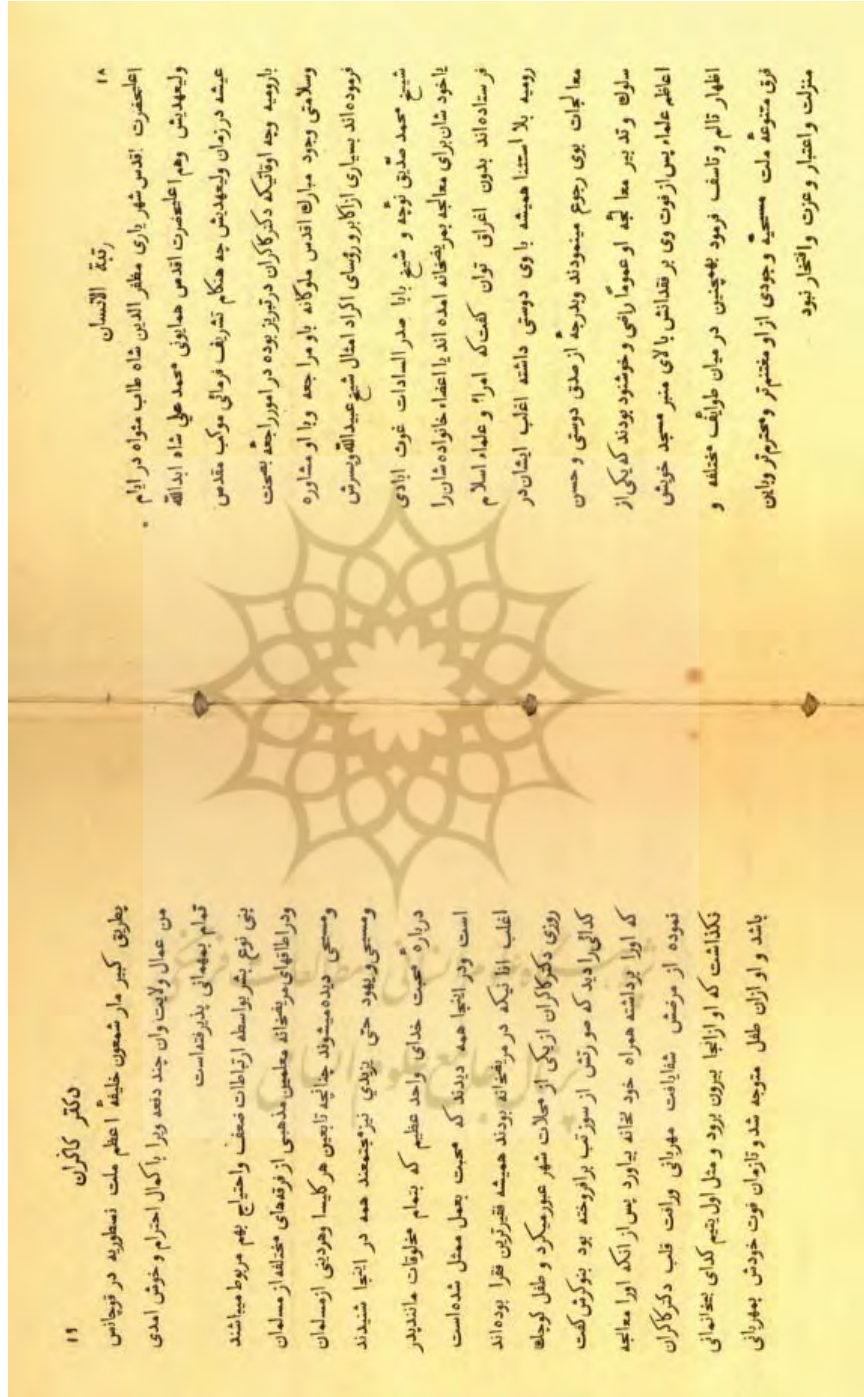 ۱۸
رتبة الانسان
اعلیحضرت اقدس شهر یاری مظفر الدین شاه طاب مثواه در ایام
ولیعهدیش وهم اعلیحضرت اقدس همایونی محمد علی شاه ابدالله
عیشه در زمان ولیعهدیش چه هنکام تشریف فرمائی موکب مقدس
بارومیه وچه اوقاتیکه دکترکاکران درتبریز بوده در امور راجعه بصحت
وسلامتی وجود مبارك اقدس ملوکانه باو مراجعه وبا او مشاوره
فرموده‌اند بسیاری ازاکابر و رؤسای اکراد امثال شیخ عبیدالله وپسرش
شیخ محمد صدّیق نوچه و شیخ بابا صدر السادات غوث ابادی
یاخود شان برای معالجه بمریضخانه امده اند یا اعضاء خانواده شان را
فرستاده‌اند بدون اغراق توان کفت که امراء و علماء اسلام
رومیه بلا استثنا همیشه با وی دوستی داشته اغلب ایشان در
معالجات بوی رجوع مینمودند وبدرجهٔ از صدق دوستی و حسن
سلوك و تدبیر معالجهٔ او عموماً راضی و خوشنود بودند که یکی از
اعاظم علماء پس از فوت وی بر فقدانش بالای منبر مسجد خویش
اظهار تالم و تاسف فرمود بهمچنین در میان طوایف مختلفه و
فرق متنوعهٔ ملت مسیحیه وجودی از او مغتنم‌تر ومحترم‌تر وباین
منزلت و اعتبار و عزت وافتخار نبود
۱۹
دکتر کاکران
بطریق کبیر مار شمعون خلیفهٔ اعظم ملت نسطوریه در قوچانس
من عمال ولایت وان چند دفعه ویرا باکمال احترام و خوش امدی
تمام بمهمانی پذیرفته‌است
بنی نوع بشر بواسطه ارتباطات ضعف واحتیاج بهم مربوط میباشند
ودراطاقهای مریضخانه معلمین مذهبی از فرقه‌های مختلفه از مسلمان
ومسیحی دیده میشوند چنانچه تابعین هر کلیسا وهردینی ازمسلمان
ومسیحی و یهود حتی یزیدی نیز مجتمعند همه در اینجا شنیدند
دربارهٔ محبت خدای واحد عظیم که بتمام مخلوقات مانندپدر
است ودر اینجا همه دیدند که محبت بعمل ممثل شده‌است
اغلب انانیکه در مریضخانه بودند همیشه فقیرترین فقرا بوده‌اند
روزی دکترکاکران ازیکی از محلات شهر عبورمیکرد و طفل کوچك
کدائی را دید که صورتش از سوز تب برافروخته بود بنوکرش کفت
که اورا برداشته همراه خود بخانه بیاورد پس از انکه اورا معالجه
نموده از مرضش شفایافت مهربانی ورافت قلب دکترکاکران
نکذاشت که او ازانجا بیرون برود و مثل اول یتیم کدای بیخانمانی
باشد و او ازان طفل متوجه شد وتازمان فوت خودش بمهربانی